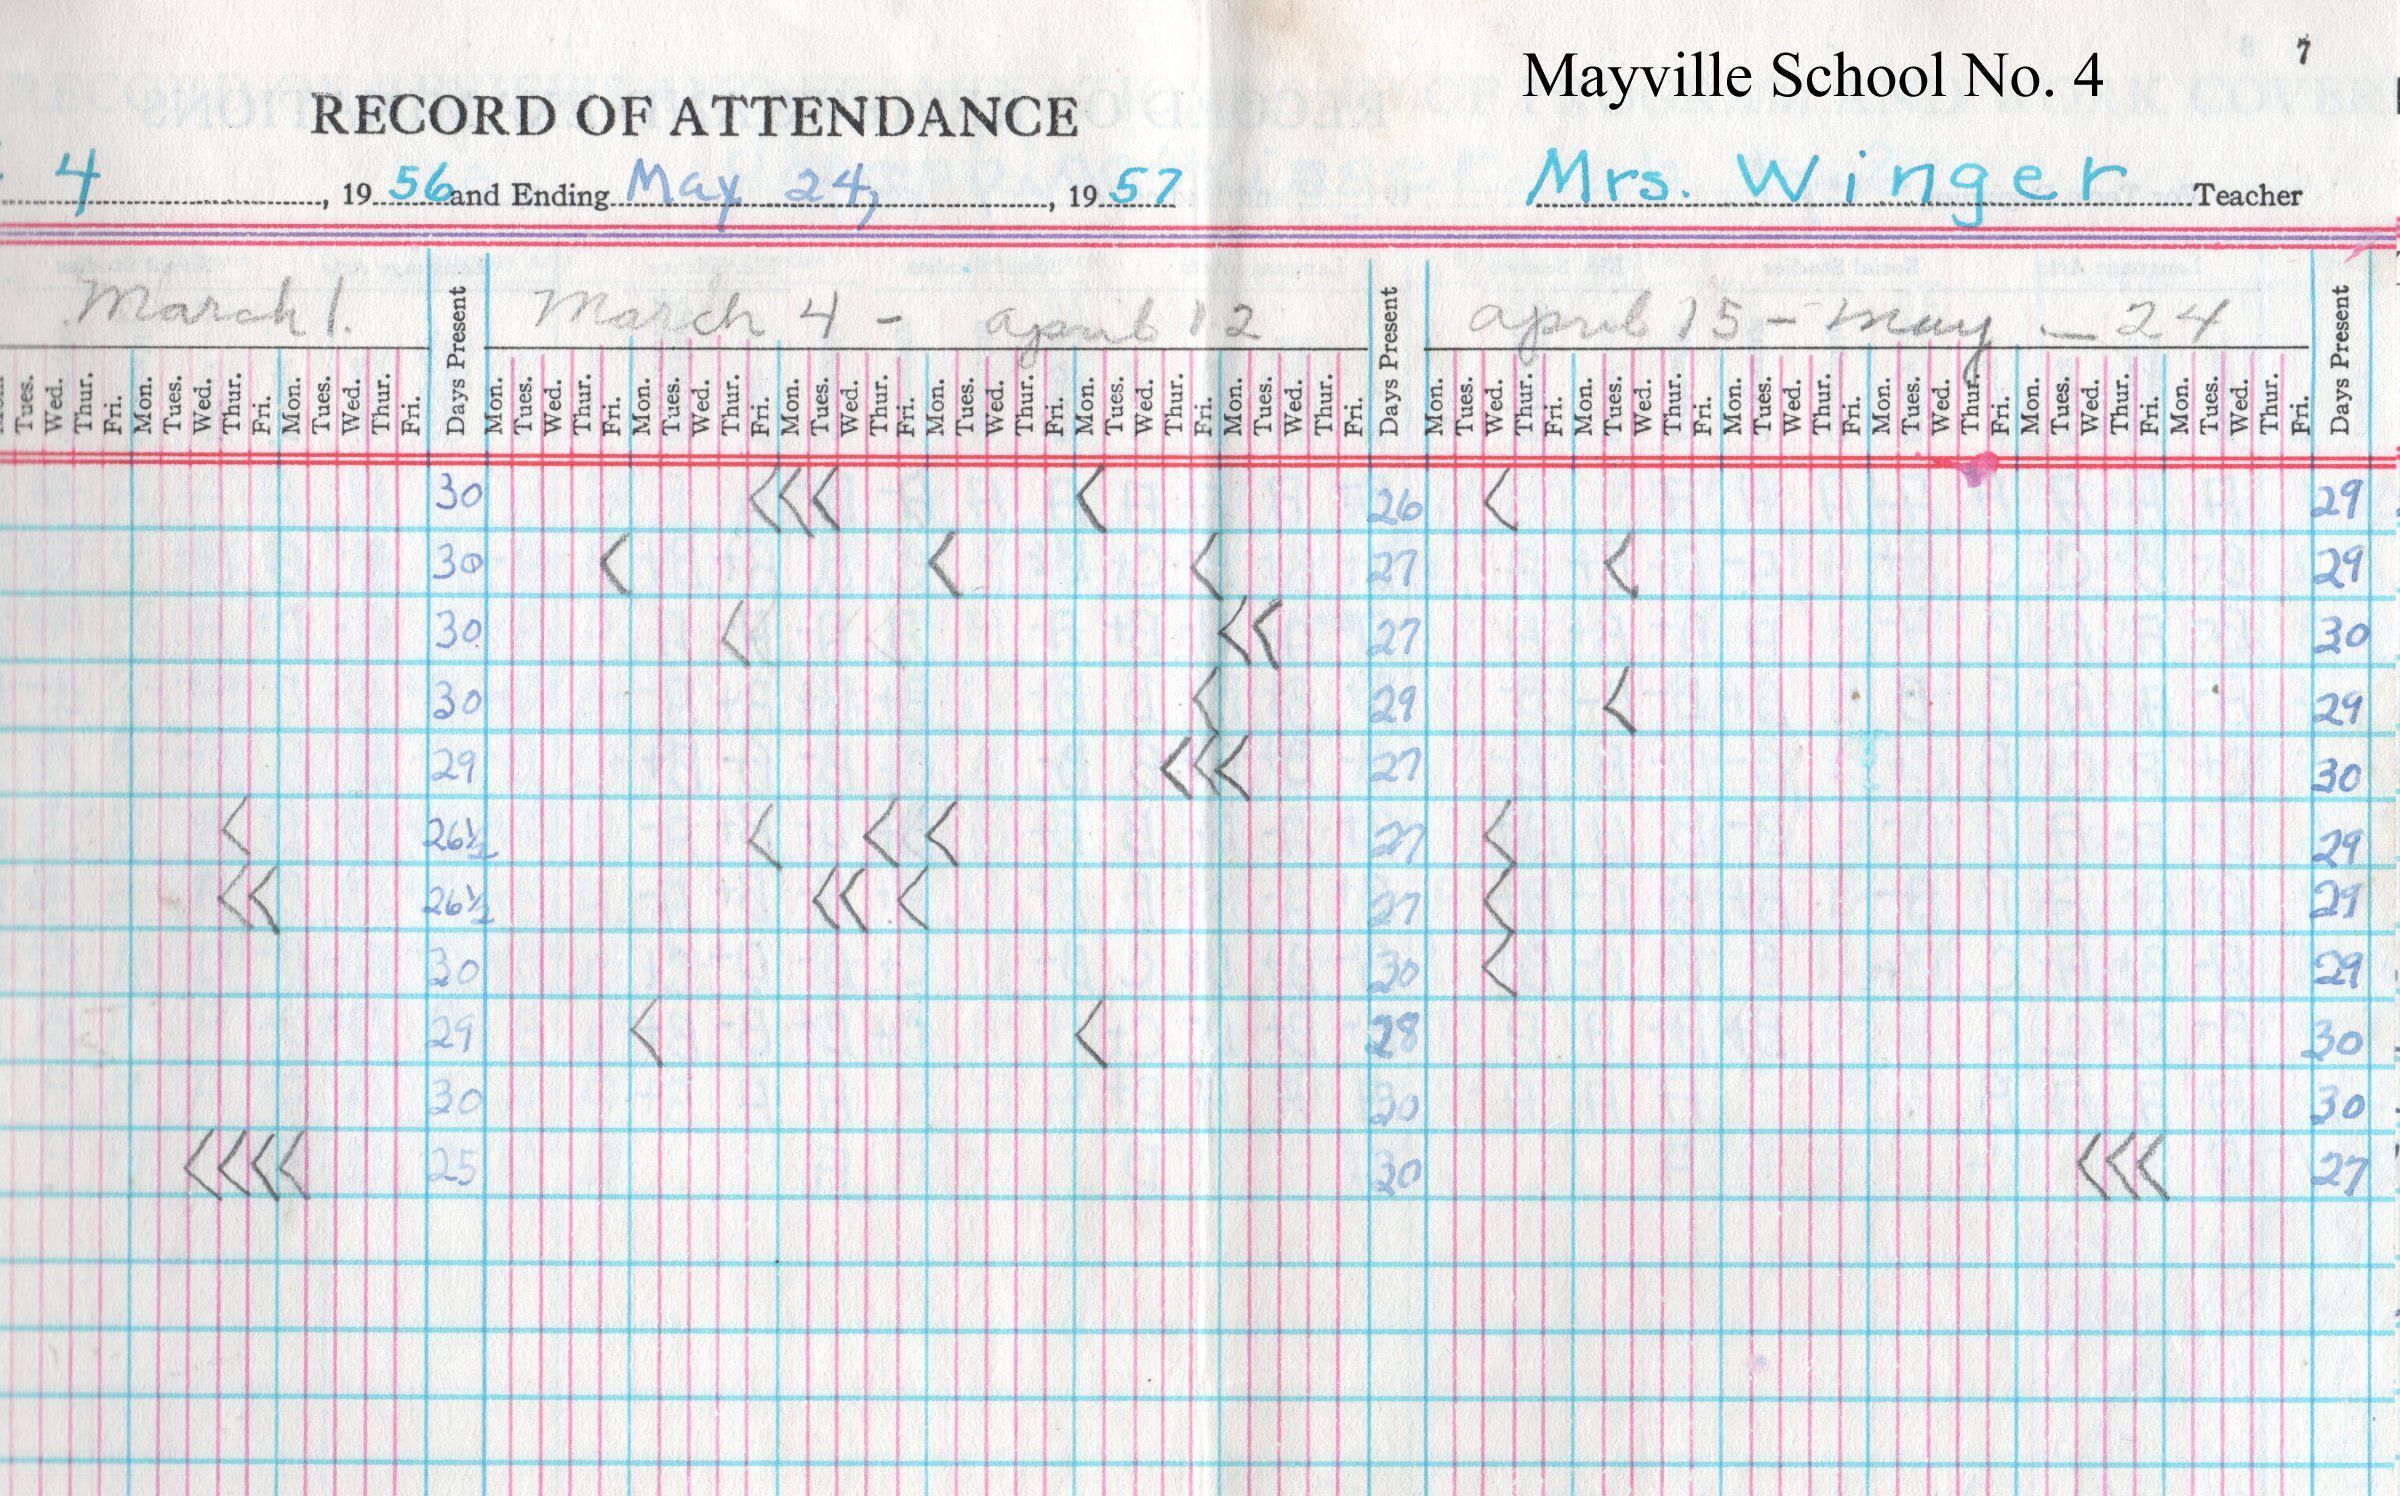 Mayville School No. 4
7
RECORD OF ATTENDANCE
4, 19 56 and Ending May 24, 19 57 Mrs. Winger Teacher
March 1. Days Present March 4 - april 12 Days Present april 15 - may - 24 Days Present
Tues. Wed. Thur. Fri. Mon. Tues. Wed. Thur. Fri. Mon. Tues. Wed. Thur. Fri. Mon. Tues. Wed. Thur. Fri. Mon. Tues. Wed. Thur. Fri. Mon. Tues. Wed. Thur. Fri. Mon. Tues. Wed. Thur. Fri. Mon. Tues. Wed. Thur. Fri. Mon. Tues. Wed. Thur. Fri. Mon. Tues. Wed. Thur. Fri. Mon. Tues. Wed. Thur. Fri. Mon. Tues. Wed. Thur. Fri. Mon. Tues. Wed. Thur. Fri. Mon. Tues. Wed. Thur. Fri. Mon. Tues. Wed. Thur. Fri.
30 26 29
30 27 29
30 27 30
30 29 29
29 27 30
26½ 27 29
26½ 27 29
30 30 29
29 28 30
30 30 30
25 30 27